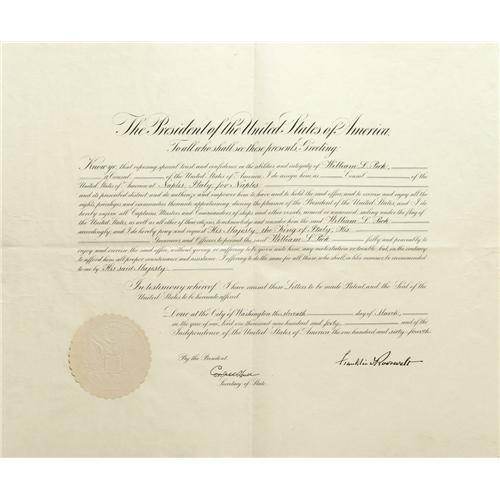 The President of the United States of America,
To all who shall see these presents, Greeting:
Know ye, that reposing special trust and confidence in the abilities and integrity of William L. Peck,
a Consul of the United States of America I do assign him as Consul of the
United States of America at Naples, Italy, for Naples
and its prescribed district and do authorize and empower him to have and to hold the said office, and to exercise and enjoy all the
rights, privileges and immunities thereunto appertaining, during the pleasure of the President of the United States, and I do
hereby enjoin all Captains, Masters and Commanders of ships and other vessels, armed or unarmed, sailing under the flag of
the United States, as well as all other of their citizens, to acknowledge and consider him the said William L. Peck
accordingly, and I do hereby pray and request His Majesty, the King of Italy, His
Governors and Officers to permit the said William L. Peck fully and peaceably to
enjoy and exercise the said office, without giving, or suffering to be given unto him, any molestation or trouble, but, on the contrary,
to afford him all proper countenance and assistance. I offering to do the same for all those who shall, in like manner, be recommended
to me by His said Majesty.
In testimony whereof I have caused these Letters to be made Patent, and the Seal of the
United States to be hereunto affixed.
Done at the City of Washington this eleventh day of March,
in the year of our Lord one thousand nine hundred and forty, and of the
Independence of the United States of America, the one hundred and sixty-fourth.
By the President:
Franklin D Roosevelt
Cordell Hull
Secretary of State.